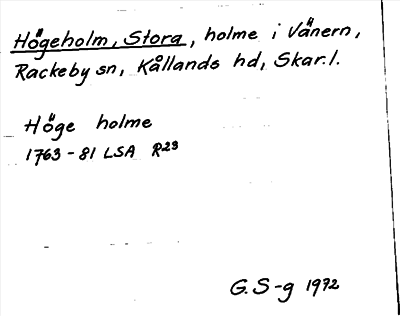 Högeholm, Stora, holme i Vänern,
Rackeby sn, Kållands hd, Skar. l.
Höge holme
1763-81 LSA R23
G. S-g 1972